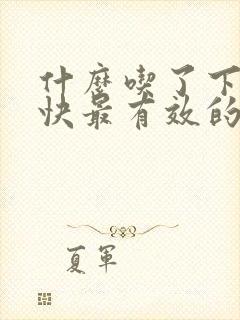 什麼喫了下
快最有效的
夏軍